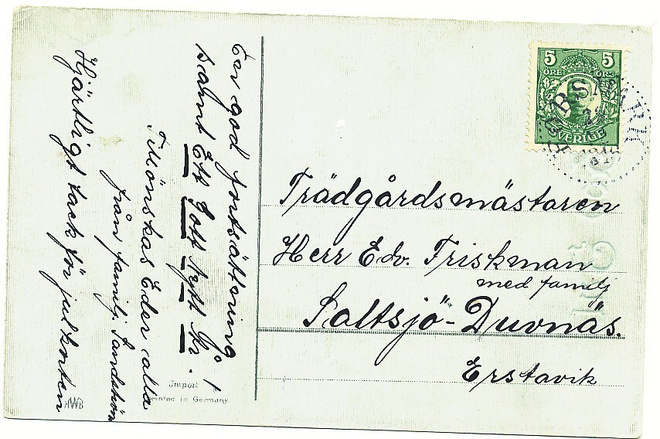 En god fortsättning
samt Ett Gott Nytt År !
Tillönskas Eder alla
från familj Sandström
Hjärtligt tack för julkorten
Import
Printed in Germany
HWB
5 5
ÖRE ÖRE
SVERIGE
Trädgårdsmästaren
Herr Edv. Friskman
med familj
Saltsjö-Duvnäs.
Erstavik